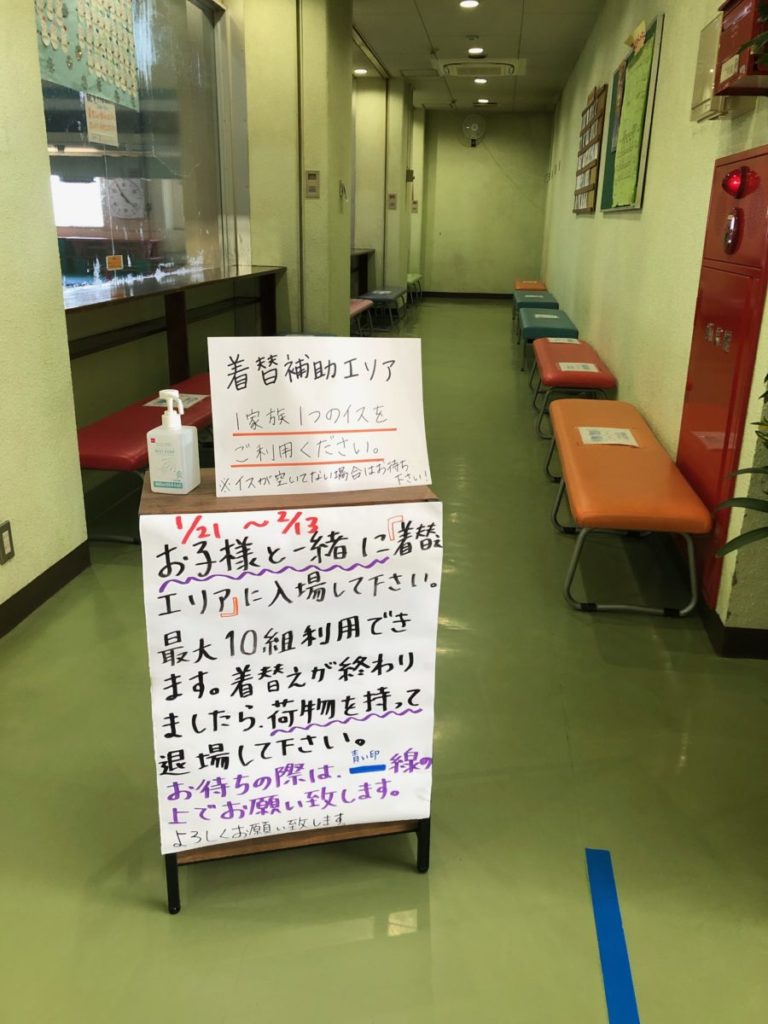 着替補助エリア
1家族1つのイスを
ご利用ください。
※イスが空いてない場合はお待ち
下さい!
1/21 ～ 2/13
お子様と一緒に『着替え
エリア』に入場して下さい。
最大10組利用でき
ます。着替えが終わり
ましたら、荷物を持って
退場して下さい。
青い印
お待ちの際は、線の
上でお願い致します。
よろしくお願い致します